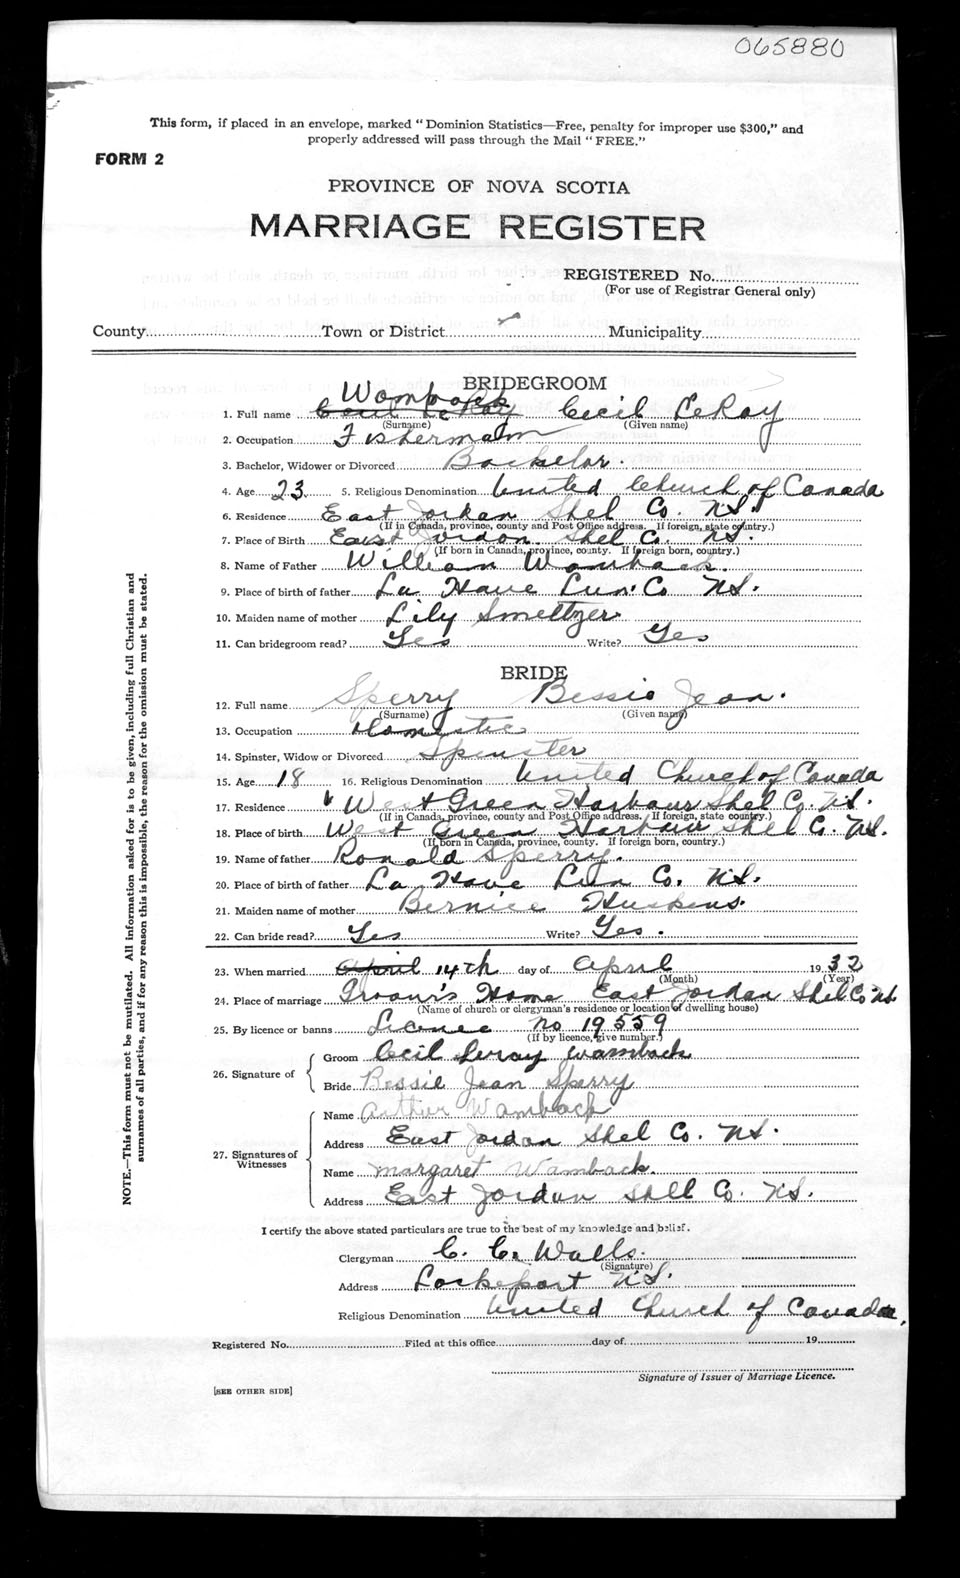 065880
This form, if placed in an envelope, marked "Dominion Statistics—Free, penalty for improper use $300," and
properly addressed will pass through the Mail "FREE."
FORM 2
PROVINCE OF NOVA SCOTIA
MARRIAGE REGISTER
REGISTERED No.
(For use of Registrar General only)
County Town or District Municipality
BRIDEGROOM
Womback
1. Full name Cecil LeRoy Cecil LeRoy
(Surname) (Given name)
2. Occupation Fisherman
3. Bachelor, Widower or Divorced Bachelor.
4. Age 23 5. Religious Denomination United Church of Canada
6. Residence East Jordan Shel Co. N.S.
(If in Canada, province, county and Post Office address. If foreign, state country.)
7. Place of Birth East Jordon. Shel Co. N.S.
(If born in Canada, province, county. If foreign born, country.)
8. Name of Father William Wamback.
9. Place of birth of father La Have Lun. Co N.S.
10. Maiden name of mother Lily Smeltzer
11. Can bridegroom read? Yes Write? Yes
BRIDE
12. Full name Sperry Bessie Jean.
(Surname) (Given name)
13. Occupation Domestic
14. Spinster, Widow or Divorced Spinster
15. Age 18 16. Religious Denomination United Church of Canada
17. Residence West Green Harbour Shel Co. N.S.
(If in Canada, province, county and Post Office address. If foreign, state country.)
18. Place of birth West Green Harbour Shel Co. N.S.
(If born in Canada, province, county. If foreign born, country.)
19. Name of father Ronald Sperry.
20. Place of birth of father La Have Lun Co. N.S.
21. Maiden name of mother Bernice Huskins.
22. Can bride read? Yes Write? Yes.
23. When married April 14th day of April 1932
(Month) (Year)
24. Place of marriage Groom's Home East Jordan Shel Co N.S.
(Name of church or clergyman's residence or location of dwelling house)
25. By licence or banns Licence No 19559
(If by licence, give number.)
26. Signature of
Groom Cecil Leroy Wamback
Bride Bessie Jean Sperry
27. Signatures of
Witnesses
Name Arthur Wamback
Address East Jordan Shel Co. N.S.
Name Margaret Wamback
Address East Jordan Shel Co. N.S.
I certify the above stated particulars are true to the best of my knowledge and belief.
Clergyman C. C. Walls.
(Signature)
Address Lockeport N.S.
Religious Denomination United Church of Canada,
Registered No. Filed at this office day of 19
Signature of Issuer of Marriage Licence.
[SEE OTHER SIDE]
NOTE.—This form must not be mutilated. All information asked for is to be given, including full Christian and
surnames of all parties, and if for any reason this is impossible, the reason for the omission must be stated.